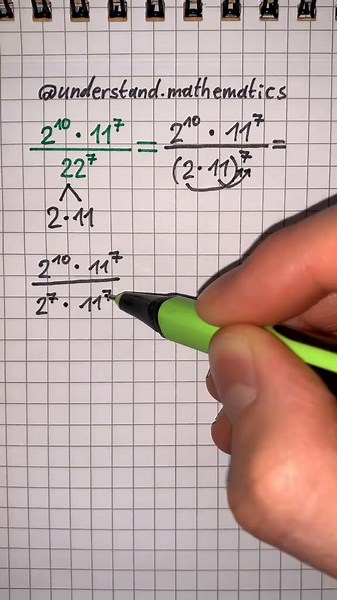 @understand.mathematics
2¹⁰ · 11⁷ / 22⁷ = 2¹⁰ · 11⁷ / (2 · 11)⁷ =
2 · 11
2¹⁰ · 11⁷ / 2⁷ · 11⁷